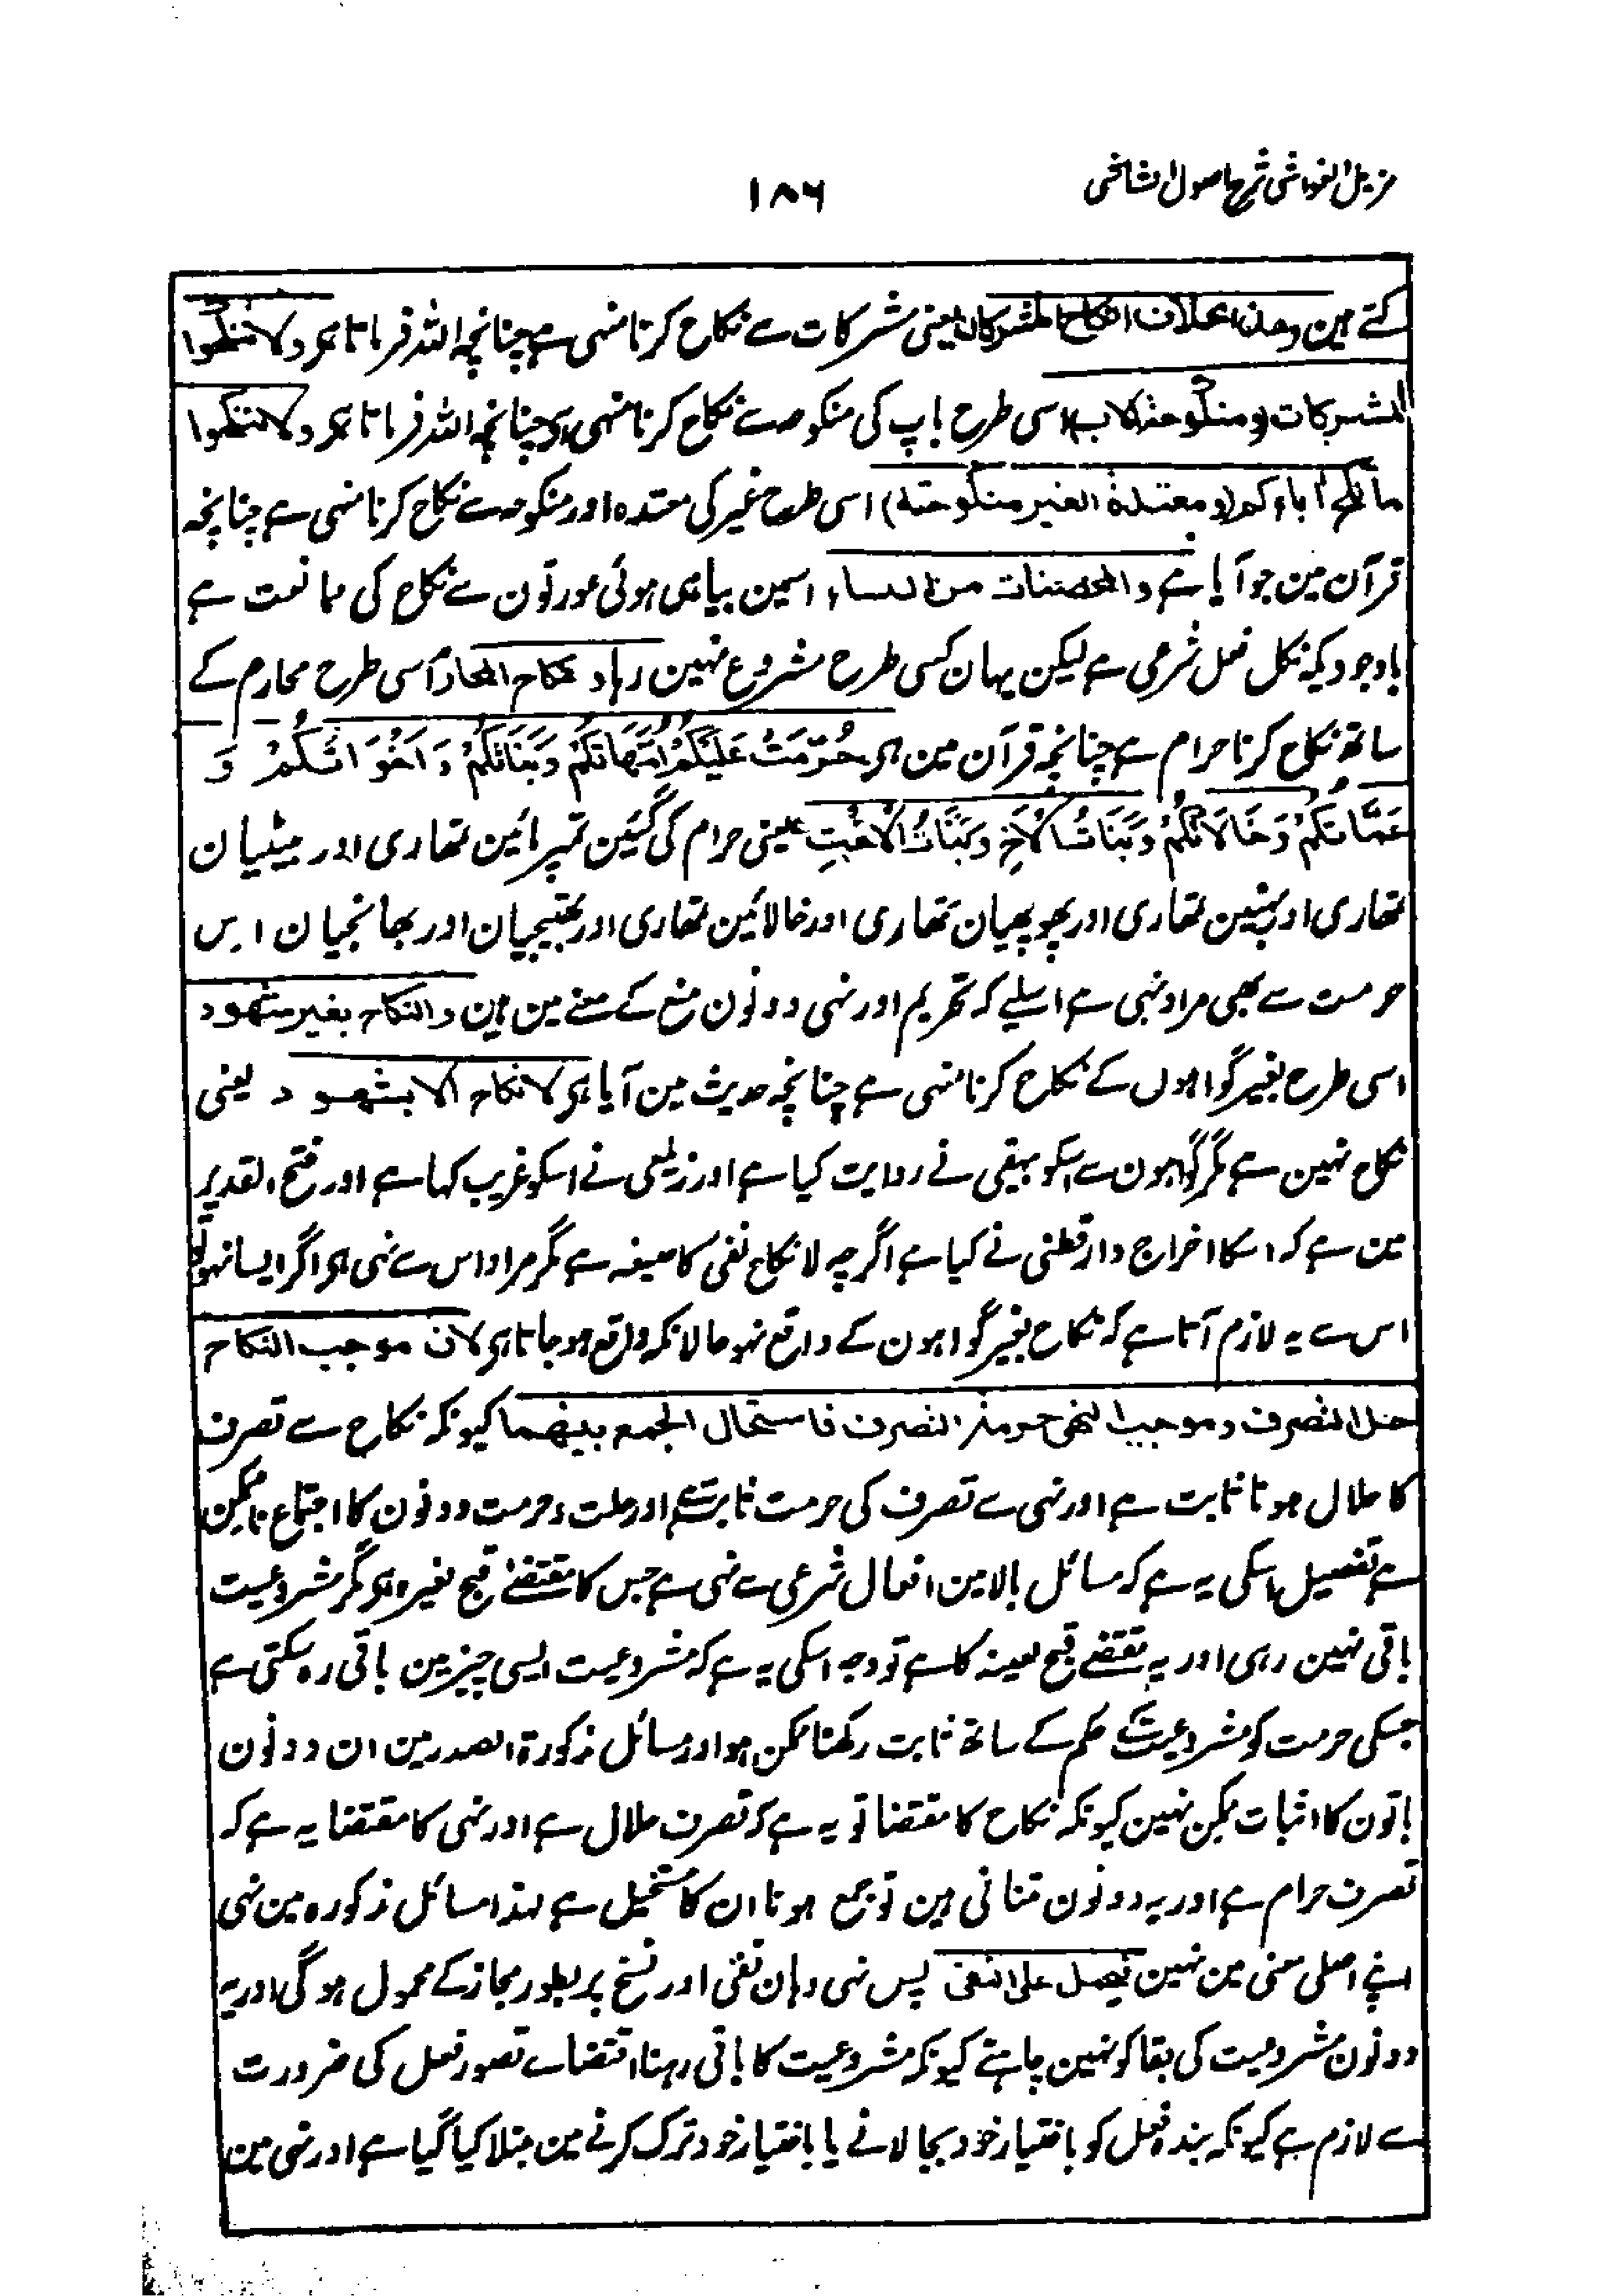 مزیل الغواشی شرح اصول الشاشی
۱۸۶
کہتے ہین وھذا بخلاف نکاح المشرکات یعنی مشرکات سے نکاح کرنا منہی ہے چنانچہ اللہ فرماتا ہی ولا تنکحوا
المشرکات (ومنکوحة الاب) اسی طرح باپ کی منکوحہ سے نکاح کرنا منہی ہی چنانچہ اللہ فرماتا ہی ولا تنکحوا
ما نکح آباء کم (ومعتدة الغیر منکوحتہ) اسی طرح غیر کی معتدہ اور منکوحہ سے نکاح کرنا منہی ہے چنانچہ
قرآن مین جو آیا ہے والمحصنات من النساء اسمین بیاہی ہوئی عورتون سے نکاح کی ممانعت ہے
باوجودیکہ نکاح فعل شرعی ہے لیکن یہان کسی طرح مشروع نہین رہا و نکاح المحارم اسی طرح محارم کے
ساتھ نکاح کرنا حرام ہے چنانچہ قرآن مین ہی حُرِّمَتْ عَلَیْکُمْ اُمَّهَاتُکُمْ وَبَنَاتُکُمْ وَاَخَوَاتُکُمْ وَ
عَمَّاتُکُمْ وَخَالَاتُکُمْ وَبَنَاتُ الْاَخِ وَبَنَاتُ الْاُخْتِ یعنی حرام کی گئین تمپر مائین تمھاری اور بیٹیان
تمھاری اور بہنین تمھاری اور پھوپھیان تمھاری اور خالائین تمھاری اور بھتیجیان اور بھانجیان اس
حرمت سے بھی مراد نہی ہے اسلیے کہ تحریم اور نہی دونون منع کے معنے مین ہین والنکاح بغیر شھود
اسی طرح بغیر گواہوں کے نکاح کرنا منہی ہے چنانچہ حدیث مین آیا ہی لا نکاح الا بشھود یعنی
نکاح نہین ہے مگر گواہون سے اسکو بیہقی نے روایت کیا ہے اور زیلعی نے اسکو غریب کہا ہے اور فتح القدیر
مین ہے کہ اسکا اخراج دارقطنی نے کیا ہے اگرچہ لا نکاح نفی کا صیغہ ہے مگر مراد اس سے نہی ہی اگر ایسا نہو تو
اس سے یہ لازم آتا ہے کہ نکاح بغیر گواہون کے واقع نہو حالانکہ واقع ہو جاتا ہی لان موجب النکاح
حل التصرف وموجب النھی حرمة التصرف فاستحال الجمع بینھما کیونکہ نکاح سے تصرف
کا حلال ہونا ثابت ہے اور نہی سے تصرف کی حرمت ثابت ہے اور حلت و حرمت دونون کا اجتماع ناممکن
ہے تفصیل اسکی یہ ہے کہ مسائل بالا مین افعال شرعی سے نہی ہے جس کا مقتضے قبح لغیرہ ہی مگر مشروعیت
باقی نہین رہی اور یہ مقتضے قبح لعینہ کا ہے تو وجہ اسکی یہ ہے کہ مشروعیت ایسی چیز مین باقی رہ سکتی ہے
جسکی حرمت کو مشروعیت کے حکم کے ساتھ ثابت رکھنا ممکن ہو اور مسائل مذکورۃ الصدر مین ان دونون
باتون کا اثبات ممکن نہین کیونکہ نکاح کا مقتضا تو یہ ہے کہ تصرف حلال ہے اور نہی کا مقتضا یہ ہے کہ
تصرف حرام ہے اور یہ دونون متنافی ہین تو جمع ہونا ان کا مستحیل ہے لہذا مسائل مذکورہ مین نہی
اپنے اصلی معنی مین نہین فیحمل علی النفی پس نہی وہان نفی اور نسخ پر بطور مجاز کے محمول ہوگی اور یہ
دونون مشروعیت کی بقا کو نہین چاہتے کیونکہ مشروعیت کا باقی رہنا اقتضاے تصور فعل کی ضرورت
سے لازم ہے کیونکہ بندہ فعل کو باختیار خود بجا لانے یا باختیار خود ترک کرنے مین مبتلا کیا گیا ہے اور نہی مین